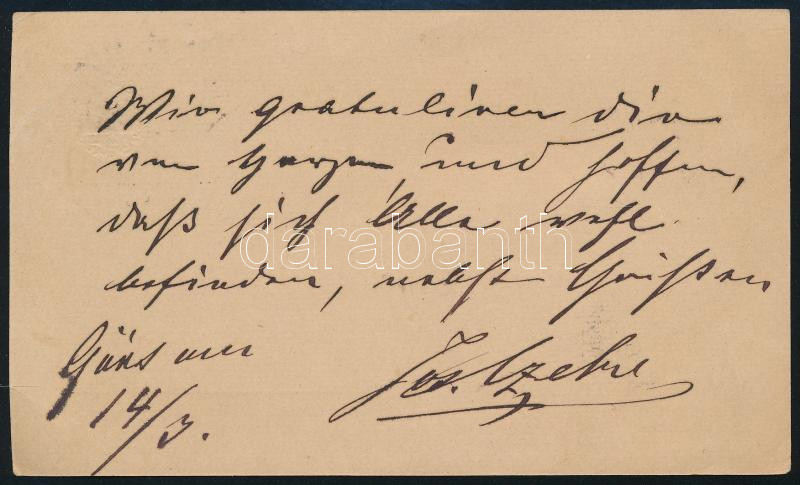 Wir gratuliren dir
von Herzen, und hoffen,
daß sich Alle wohl
befinden, nebst Grüßen
darabanth
Güns am
14/3.
Jos.